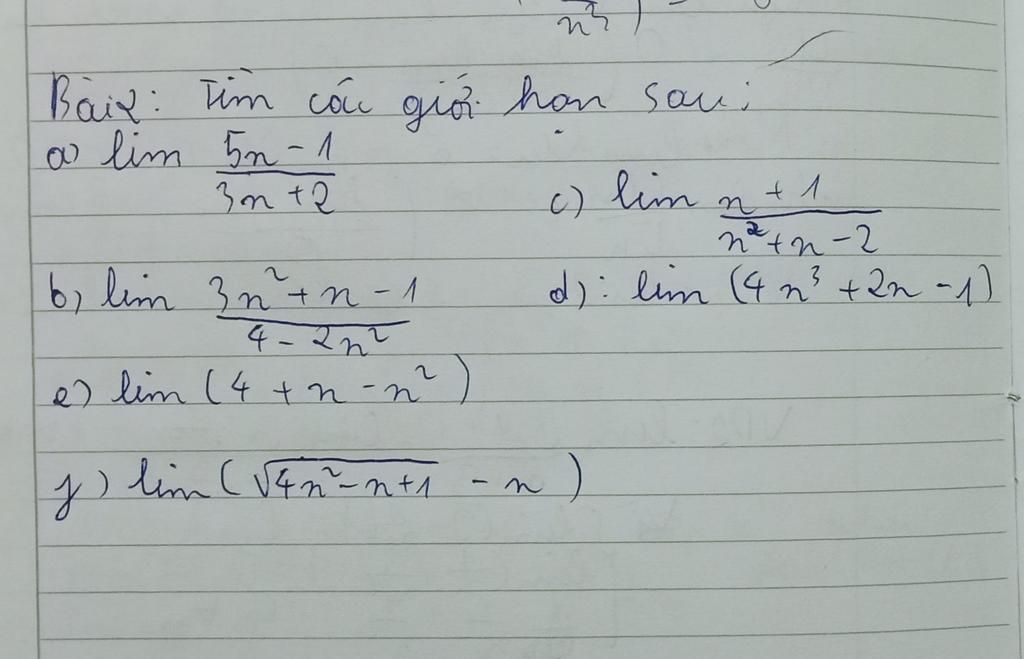 n³ )
Bài 2: Tìm các giới hạn sau:
a) lim (5n - 1)/(3n + 2)
c) lim (n + 1)/(n² + n - 2)
b) lim (3n² + n - 1)/(4 - 2n²)
d): lim (4n³ + 2n - 1)
e) lim (4 + n - n²)
f) lim (√(4n² - n + 1) - n)